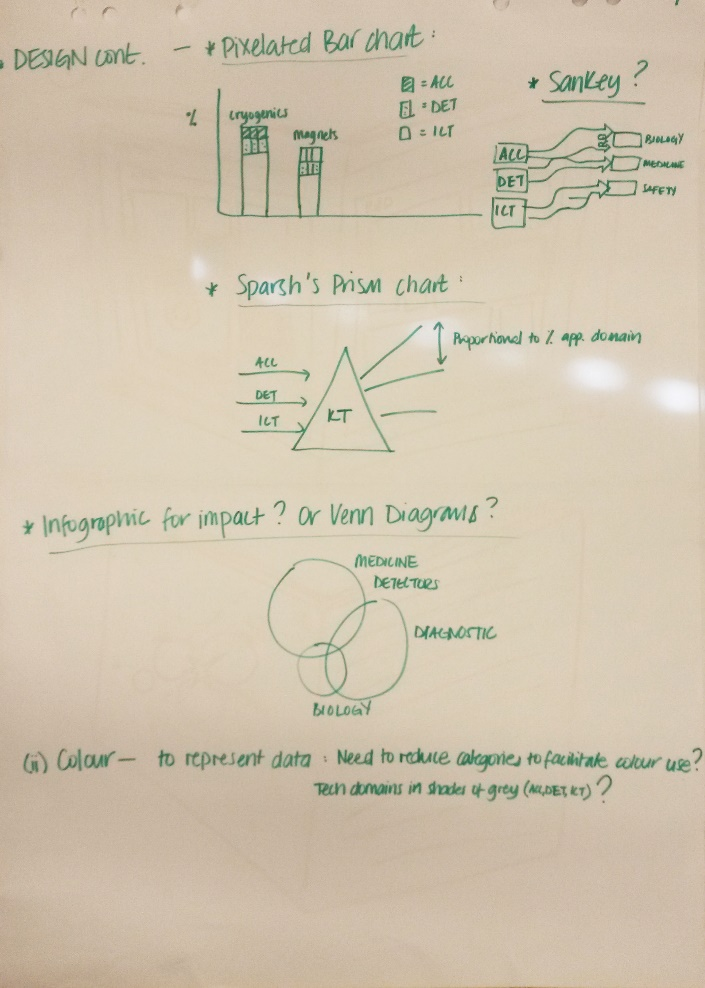 • DESIGN cont. — * Pixelated Bar chart :
= ACC
= DET
= ICT
%
cryogenics
magnets
* Sankey ?
ACC
DET
ICT
BIOLOGY
MEDICINE
SAFETY
* Sparsh's Prism chart :
ACC
DET
ICT
KT
Proportional to % app. domain
* Infographic for impact ? Or Venn Diagrams ?
MEDICINE
DETECTORS
DIAGNOSTIC
BIOLOGY
(ii) Colour — to represent data : Need to reduce categories to facilitate colour use?
Tech domains in shades of grey (ACC, DET, ICT) ?